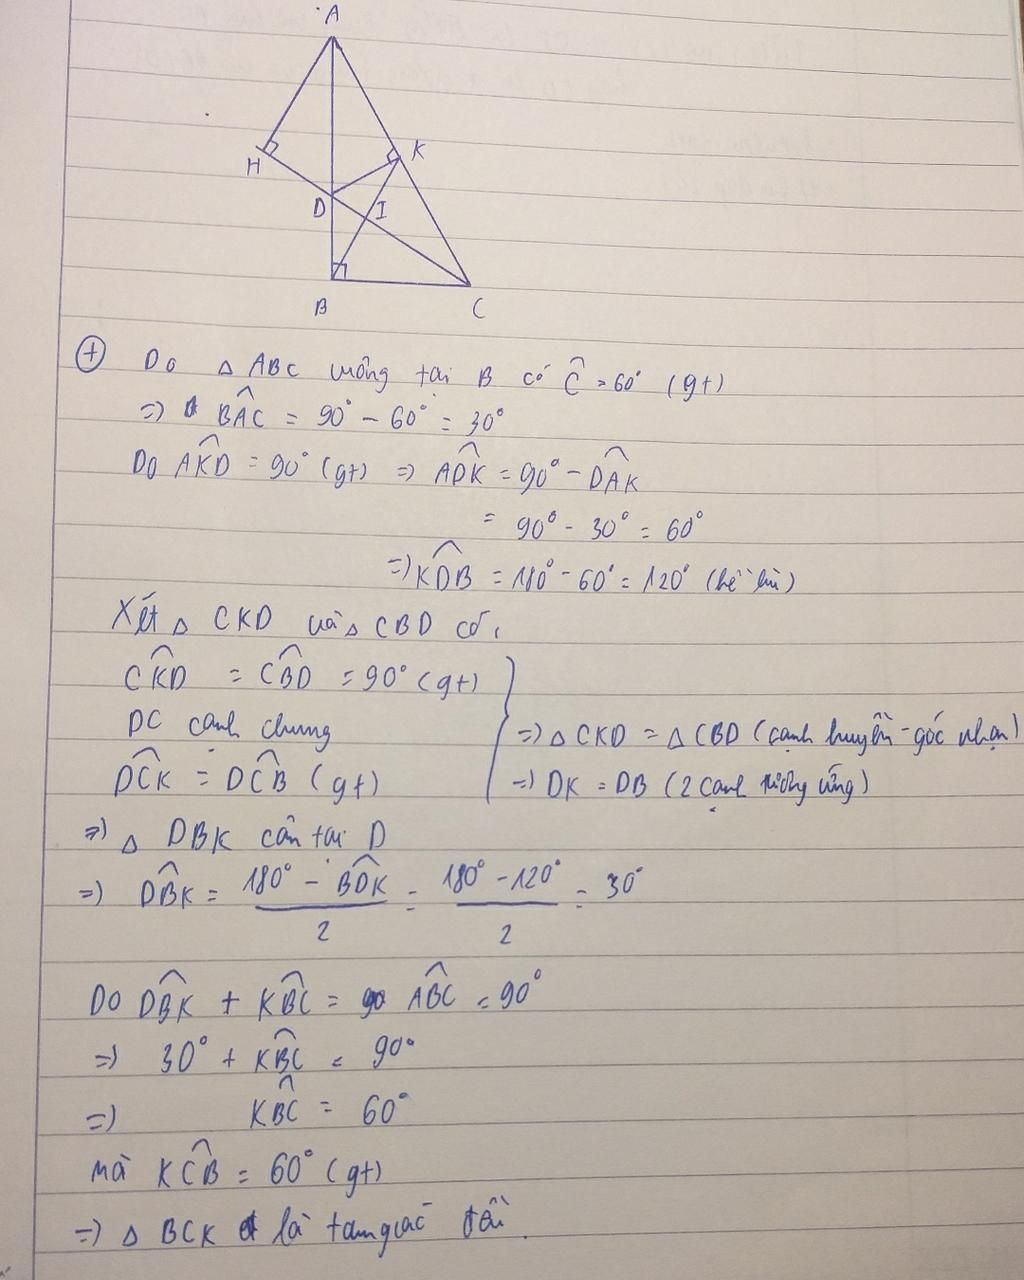 A
H
K
D
I
B
C
+ Do △ ABC vuông tại B có Ĉ = 60° (gt)
=> BÂC = 90° - 60° = 30°
Do AK̂D = 90° (gt) => AD̂K = 90° - DÂK
= 90° - 30° = 60°
=> KD̂B = 180° - 60° = 120° (kề bù)
Xét △ CKD và △ CBD có,
CK̂D = CB̂D = 90° (gt)
DC cạnh chung
DĈK = DĈB (gt)
=> △ CKD = △ CBD (cạnh huyền - góc nhọn)
=> DK = DB (2 cạnh tương ứng)
=> △ DBK cân tại D
=> DB̂K = (180° - BD̂K)/2 = (180° - 120°)/2 = 30°
Do DB̂K + KB̂C = AB̂C = 90°
=> 30° + KB̂C = 90°
=> KB̂C = 60°
mà KĈB = 60° (gt)
=> △ BCK là tam giác đều.